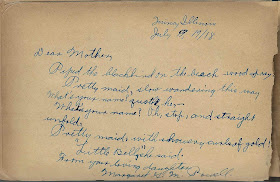 July 9 1918
Dear Mother,
Piped the blackbird on the beach wood spray
Pretty maid, slow wandering this way
What's your name? quoth he
What's your name? Oh, stop, and straight
unfold,
Pretty maid with showery curls of gold!
"Little Bell," she said.
From your loving daughter
Margaret M. Powell